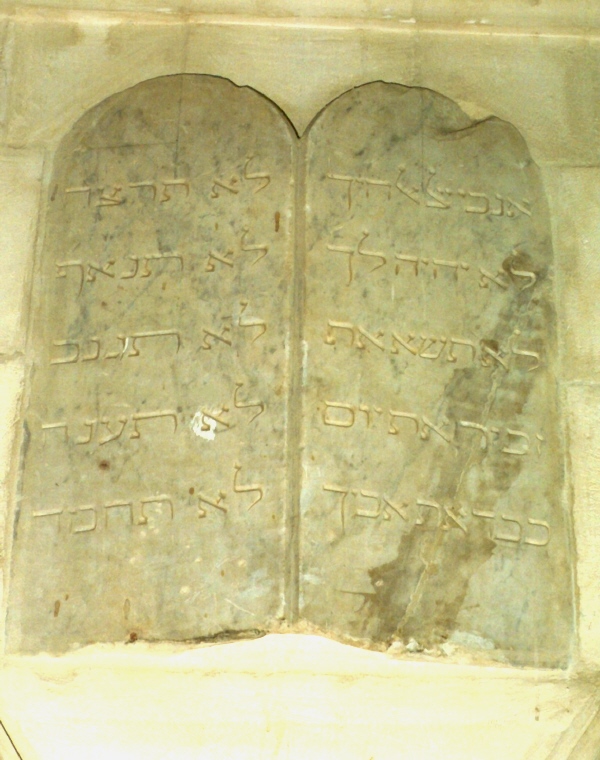 אנכי
לא יהיה לך
לא תשא את
זכור את יום
כבד את אביך
לא תרצח
לא תנאף
לא תגנב
לא תענה
לא תחמד